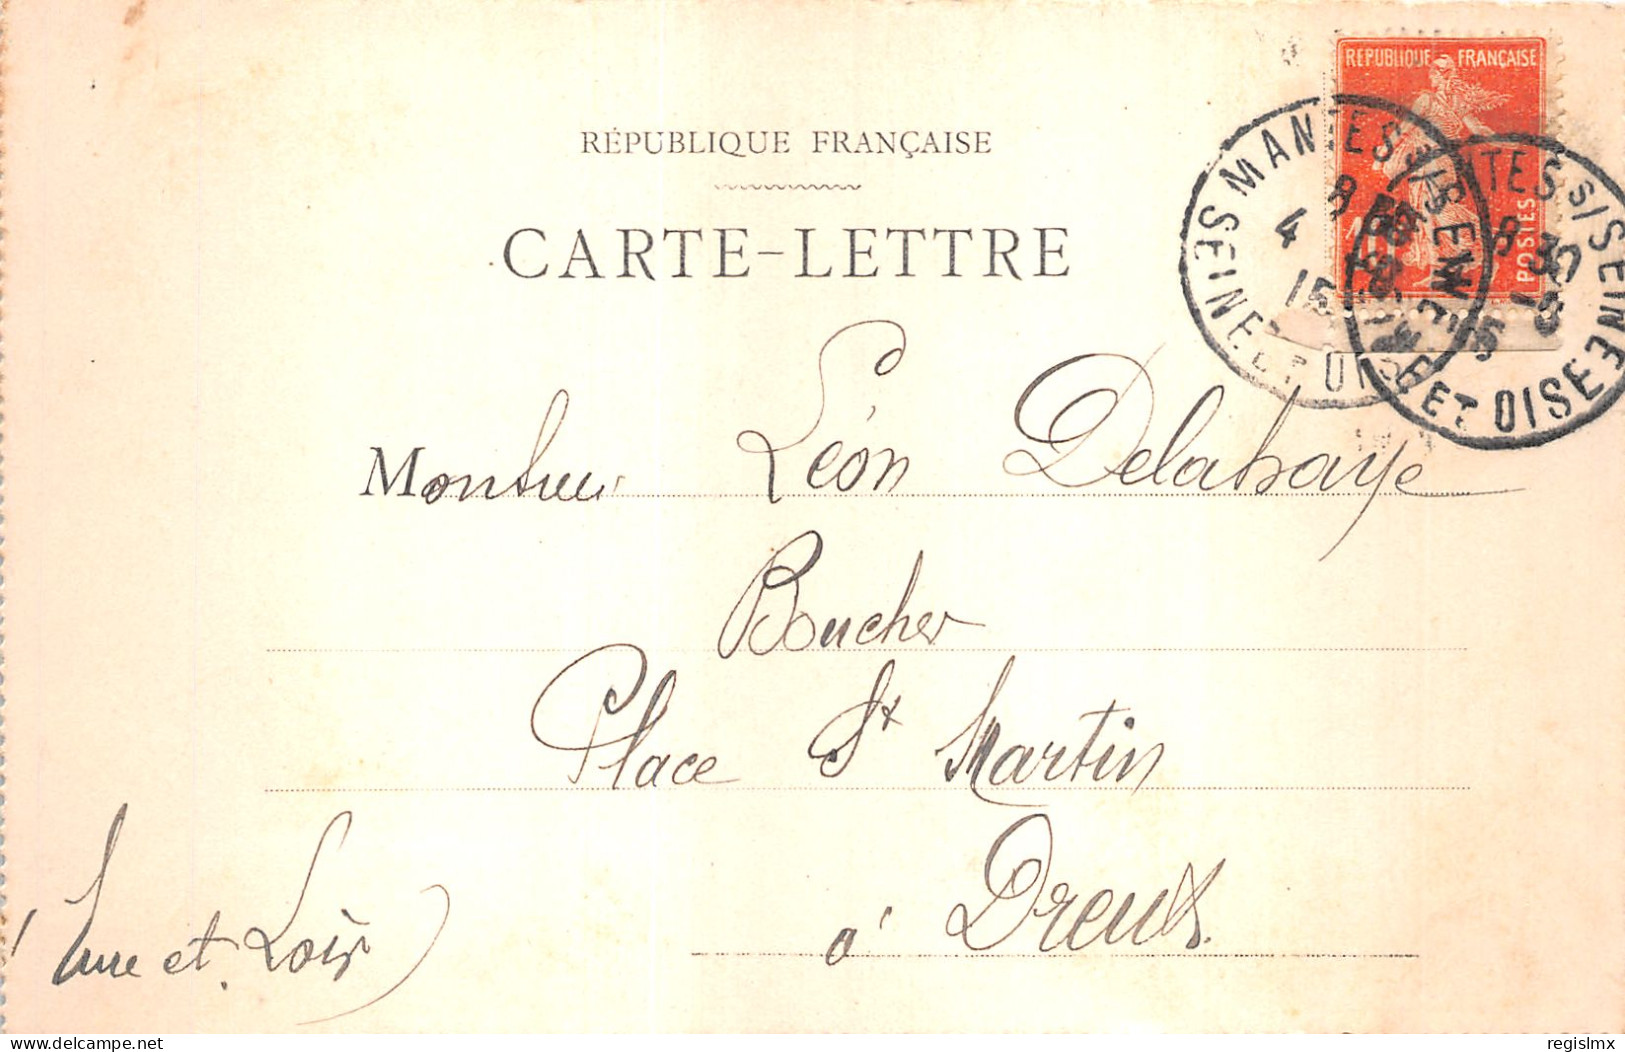 RÉPUBLIQUE FRANÇAISE
CARTE-LETTRE
REPUBLIQUE FRANÇAISE
POSTES
MANTES S/SEINE
8
4
15
SEINE ET OISE
TES S/SEINE
8 30
SEINE ET OISE
Monsieur Léon Delahaye
Boucher
Place St Martin
à Dreux
(Eure et Loir)
www.delcampe.net
regislmx